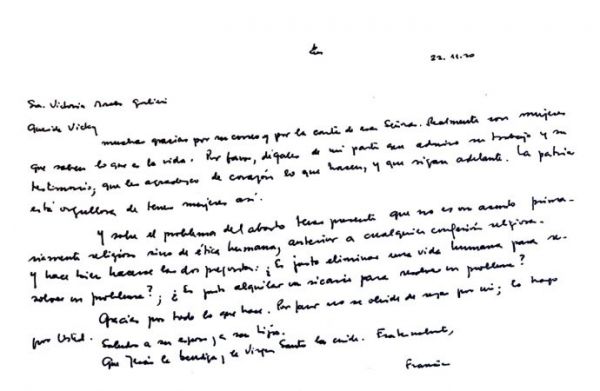 22.11.20
Sra. Victoria Morales Gorleri
Querida Vicky
muchas gracias por su correo y por la carta de esas Señoras. Realmente son mujeres
que saben lo que es la vida. Por favor, dígales de mi parte que admiro su trabajo y su
testimonio; que les agradezco de corazón lo que hacen, y que sigan adelante. La patria
está orgullosa de tener mujeres así.
Y sobre el problema del aborto tener presente que no es un asunto prima-
riamente religioso sino de ética humana, anterior a cualquier confesión religiosa.
Y hace bien hacerse las dos preguntas: ¿Es justo eliminar una vida humana para re-
solver un problema?; ¿Es justo alquilar un sicario para resolver un problema?
Gracias por todo lo que hace. Por favor no se olvide de rezar por mí; lo hago
por Usted. Saludos a su esposo y a sus hijos.
Que Jesús la bendiga y la Virgen Santa la cuide. Fraternalmente,